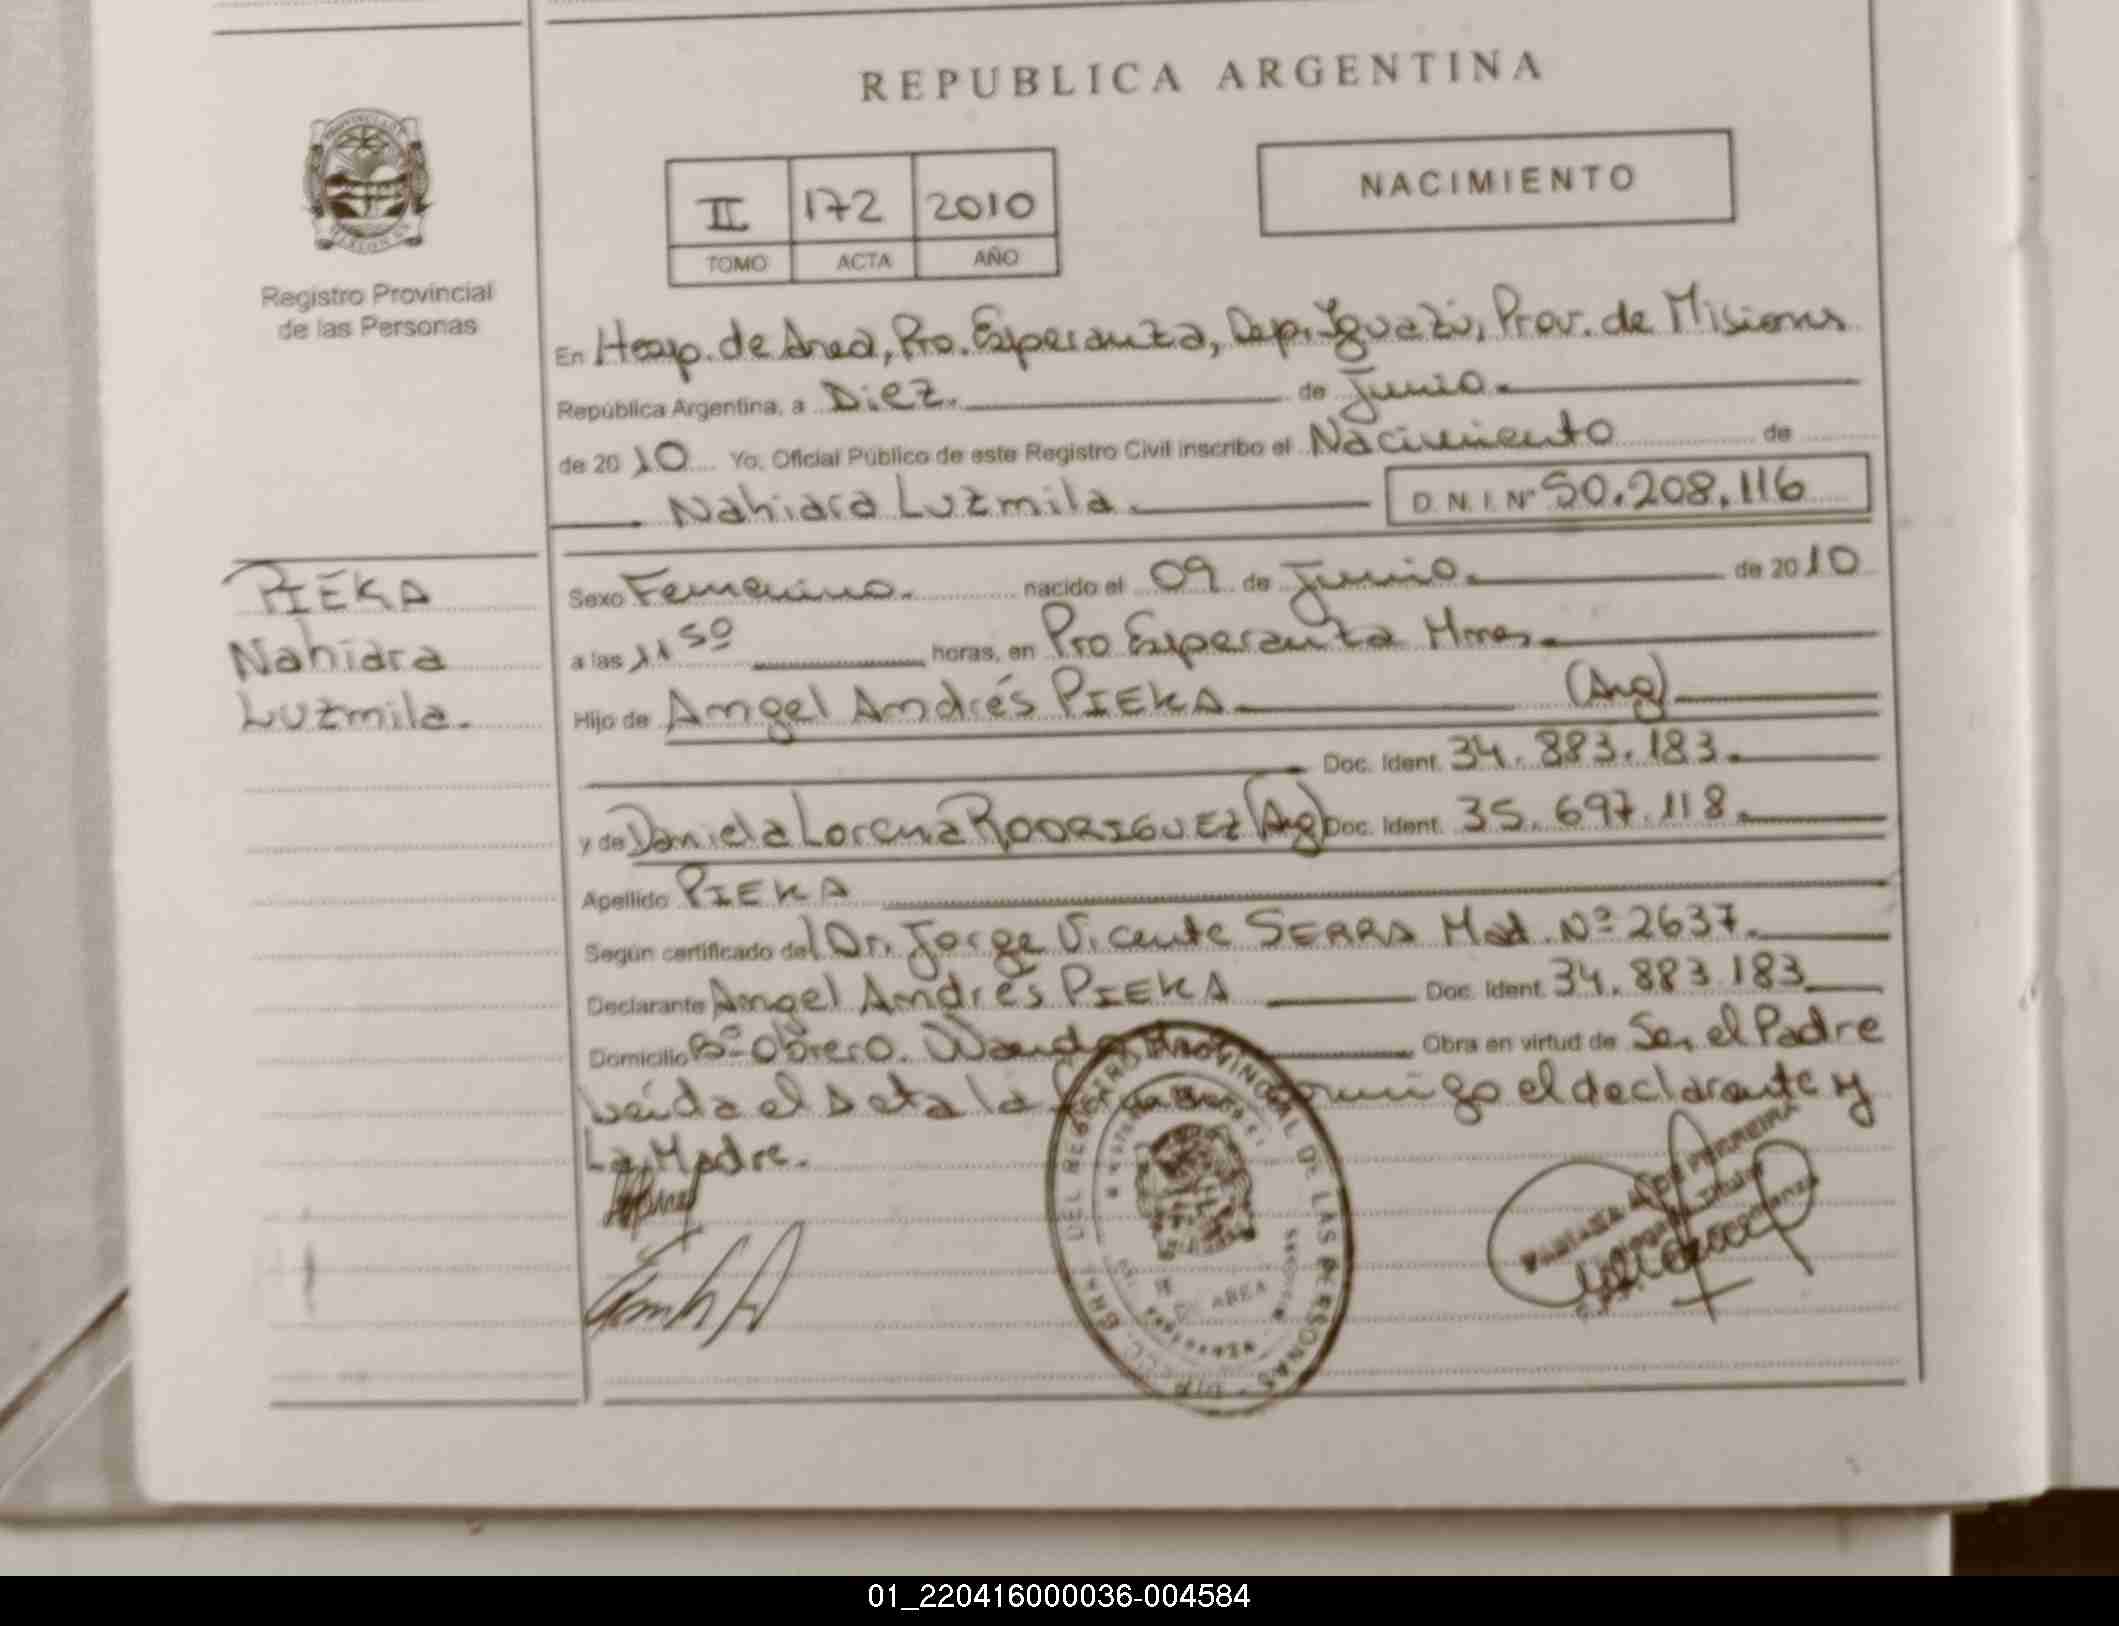 REPUBLICA ARGENTINA
NACIMIENTO
II 172 2010
TOMO ACTA AÑO
Registro Provincial
de las Personas
En Hosp. de Area, Pto. Esperanza, Dep. Iguazú, Prov. de Misiones
República Argentina, a Diez. de Junio.
de 2010 Yo, Oficial Público de este Registro Civil inscribo el Nacimiento de
Nahiara Luzmila. D.N.I. Nº 50.208.116
PIEKA
Nahiara
Luzmila.
Sexo Femenino. nacido el 09 de Junio. de 2010
a las 11 50 horas, en Pto Esperanza Mnes.
Hijo de Angel Andrés PIEKA (Arg)
Doc. Ident. 34.883.183.
y de Daniela Lorena RODRIGUEZ (Arg) Doc. Ident. 35.697.118.
Apellido PIEKA
Según certificado del Dr. Jorge Vicente SERRA Mat. Nº 2637.
Declarante Angel Andrés PIEKA Doc. Ident. 34.883.183
Domicilio Bº Obrero. Wanda Obra en virtud de Ser el Padre
Leída el Acta la conmigo el declarante y
La Madre.
REGISTRO PROVINCIAL DE LAS PERSONAS
DE AREA
PERREIRA
01_220416000036-004584